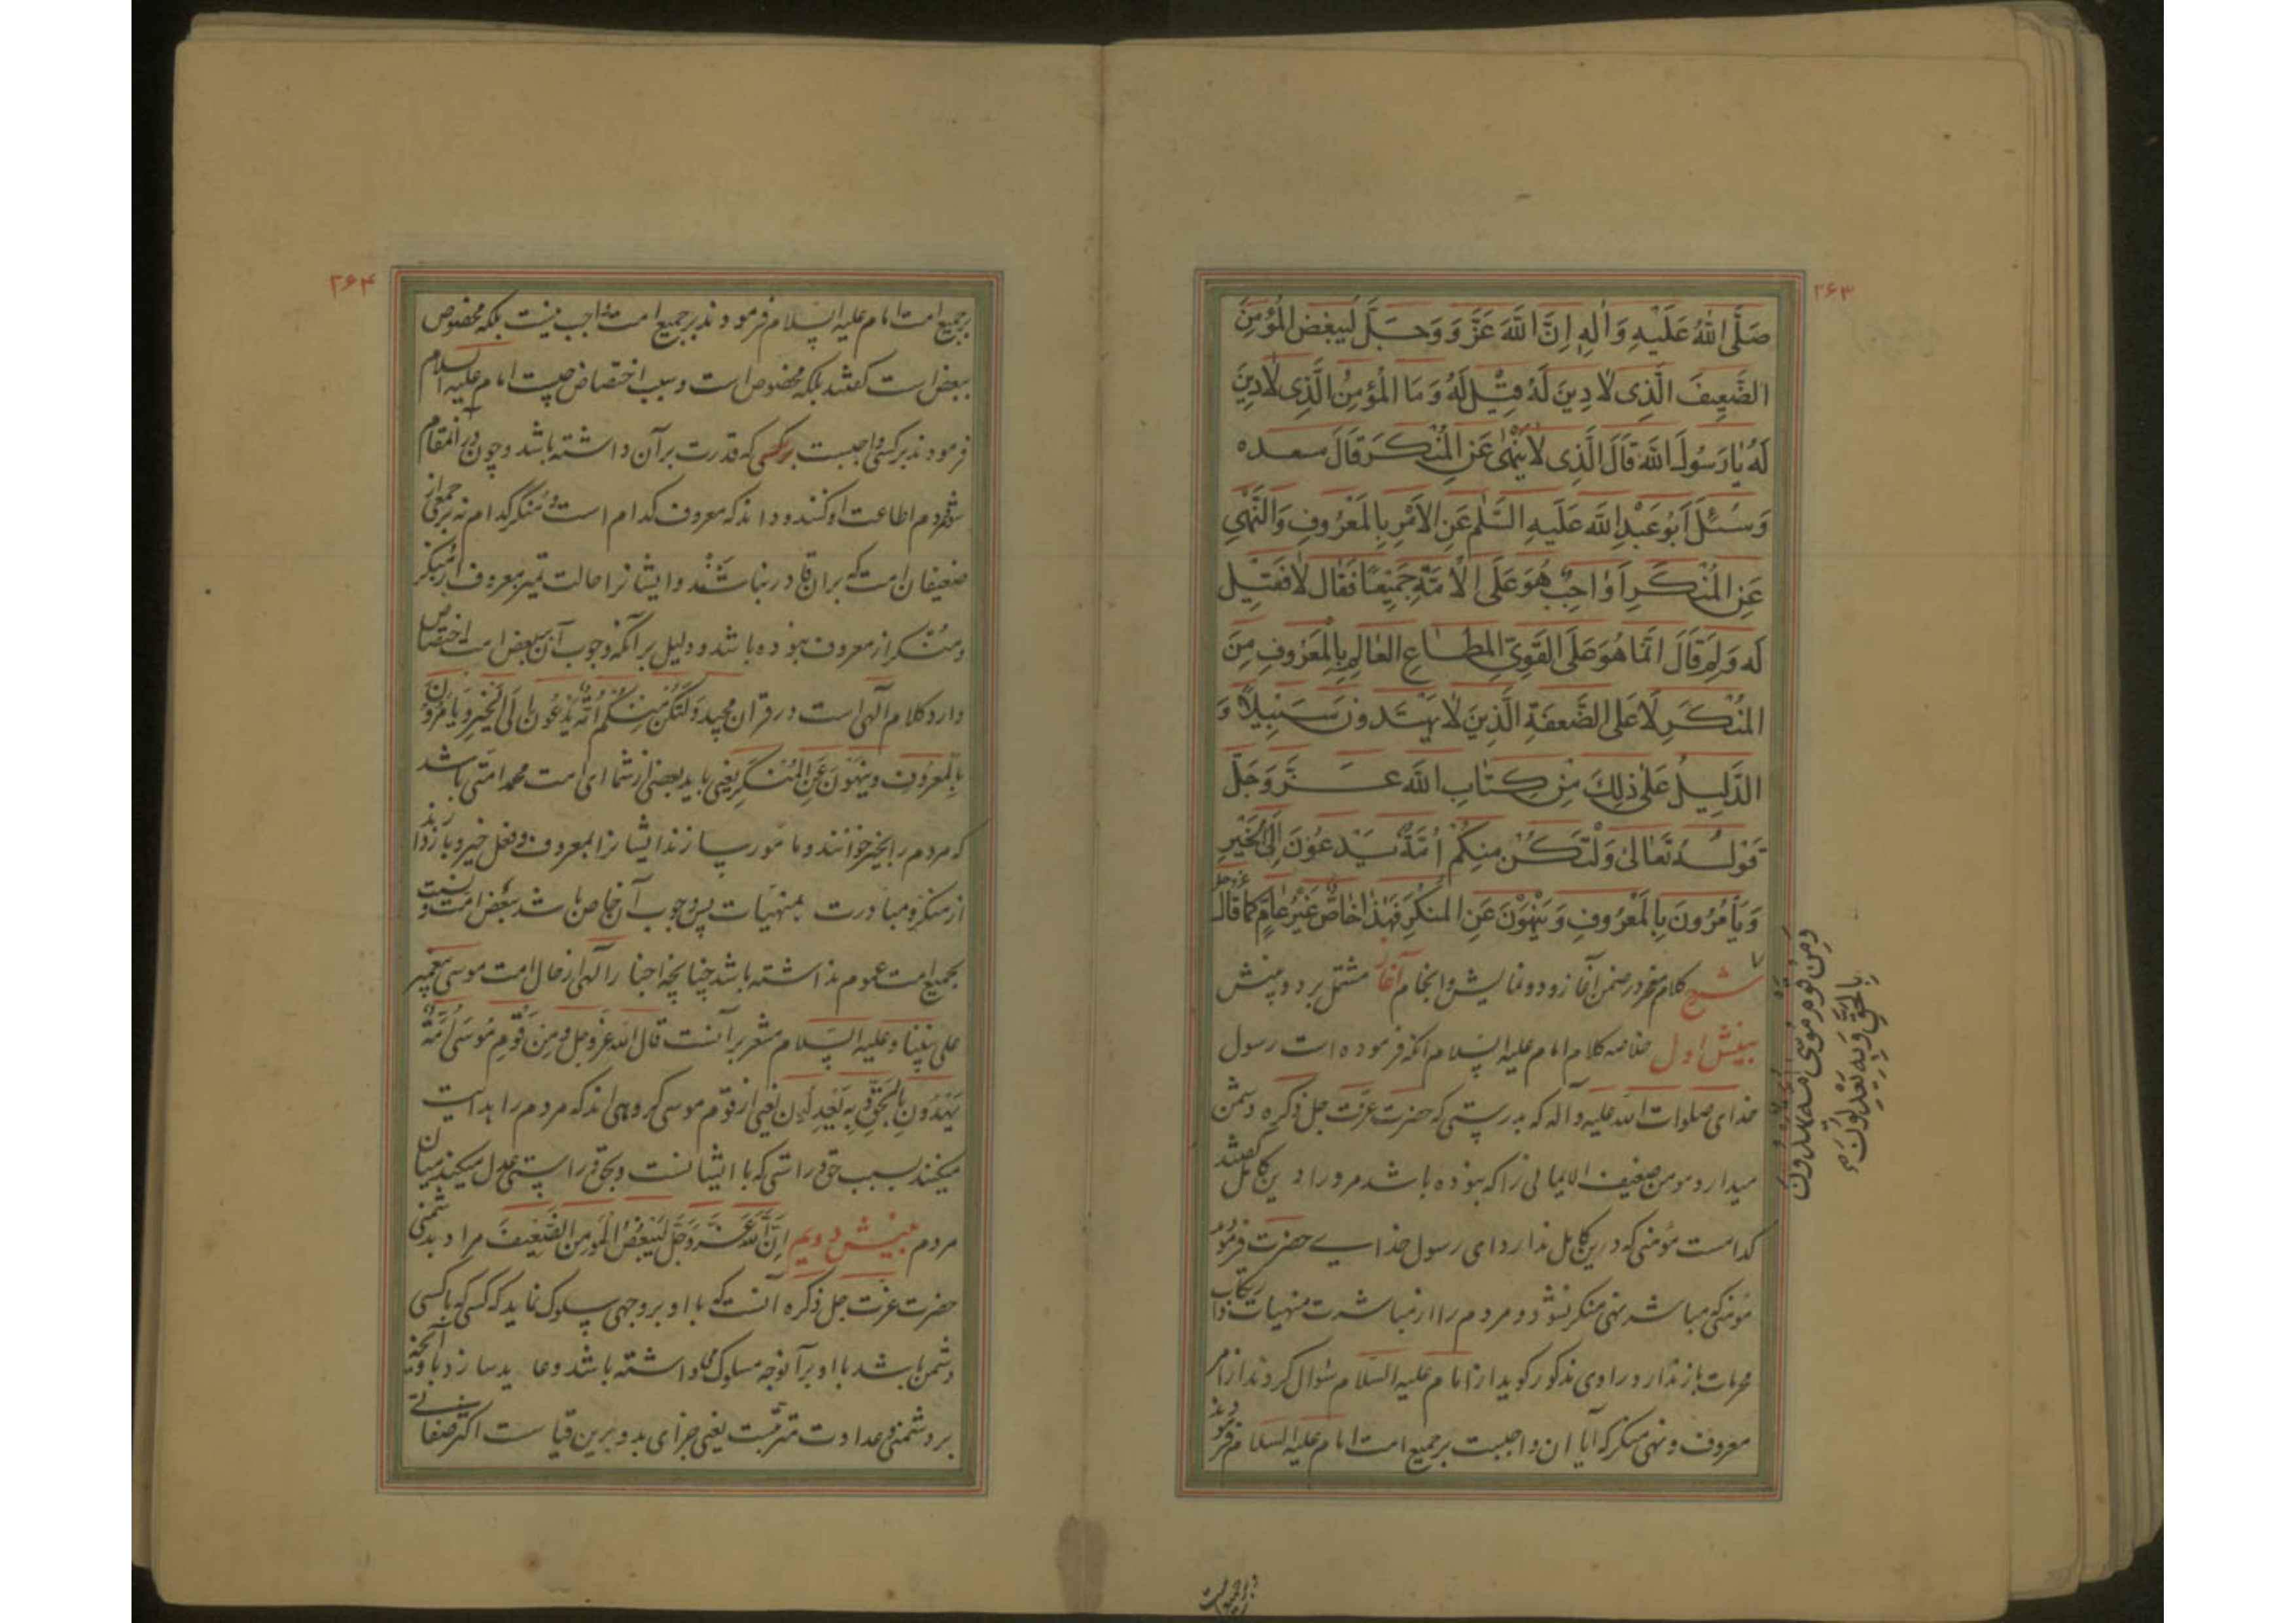 ۲۶۳
صَلَّی اللهُ عَلَیْهِ وَاٰلِهِ اِنَّ اللهَ عَزَّ وَ وَجَلَّ لَیبغِض المؤمِنَ
الضَّعِیفَ الَّذِی لٰا دِینَ لَهُ قِیْلَ لَهُ وَمَا الْمُؤمِنُ الَّذِی لٰادِینَ
لَهُ یٰارَسُولَ اللهِ قَالَ الَّذِی لٰایَنْهٰی عَنِ الْمُنْکَرَ قَالَ مسعده
وَسُئِلَ اَبُوعَبْدِ اللهِ عَلَیهِ السَّلٰم عَنِ الاَمْرِ بِالمَعْرُوفِ وَالنَّهْیِ
عَنِ الْمُنْکَرِ اَوٰاجِبٌ هُوَ عَلَی الْاُمَّةِ جَمِیْعًا فَقَال لٰا فَقِیْل
لَه وَلِمَ قَالَ اِنَّمٰا هُوَ عَلَی القَوِیِّ المطٰاعِ العٰالِمِ بِالْمَعْرُوفِ مِنَ
المُنْکَرِ لٰا عَلَی الضَّعفَةِ الَّذِینَ لٰا یَهْتَدونَ سَبِیلًا وَ
الدَّلِیلُ عَلٰی ذٰلِکَ مِنْ کِتٰابِ اللهِ عَزَّ وَجَلَّ
قَولُهُ تَعٰالٰی وَلْتَکُنْ مِنکُمْ اُمَّةٌ یَدْعُوْنَ اِلَی الْخَیْرِ
وَیَأمُرُونَ بِالمَعْرُوفِ وَیَنْهَوْنَ عَنِ المُنکَرِ فَهٰذٰا خٰاصٌّ غَیْرُ عٰامٍّ کمٰا قٰال عزوجل
شرح کلام معجز در ضمن آغاز و دو نمایش و انجام آغاز مشتمل بر دو بینش
بینش اول خلاصه کلام امام علیه السلام انکه فرموده است رسول
خدای صلوات الله علیه وآله که بدرستی که حضرت عزت جل ذکره دشمن
میدارد مومن ضعیف الایمانی را که نبوده باشد مر ورا دین کامل گفتند
کدامست مؤمنی که دین کامل ندارد ای رسول خدای حضرت فرمود
مؤمنی که مباشر نهی منکر نشود و مردم را از مباشرت منهیات و ارتکاب
محرمات باز ندارد و راوی مذکور کوید از امام علیه السلام سؤال کردند از امر
معروف و نهی منکر که ایا ان واجبست بر جمیع امت امام علیه السلام فرمودند
وَمِنْ قَوْمِ مُوسٰی اُمَّة یَهْدُونَ
بِالحَقِّ وَبِه یَعْدِلُوْنَ
۲۶۴
بر جمیع امت امام علیه السلام فرمودند بر جمیع امت واجب نیست بلکه مخصوص
ببعض است کفتند بلکه مخصوص است و سبب اختصاص چیست امام علیه السلام
فرمودند بر کسی واجبست بر کسی که قدرت بر آن داشته باشد و چون در انمقام
شود مردم اطاعت او کنند و داند که معروف کدام است و منکر کدام نه بر جمعی از
ضعیفان امت که بر ان قادر نباشند و ایشانرا حالت تمیز معروف از منکر
و منکر از معروف نبوده باشد و دلیل بر آنکه وجوب آن ببعض امت اختصاص
دارد کلام آلهی است در قران مجید وَلْتَکُنْ مِنْکُمْ اُمَّةٌ یَدْعُونَ اِلَی الْخَیْرِ وَ یَامُرُونَ
بِالْمَعْرُوفِ وَیَنْهَوْنَ عَنِ الْمُنْکَرِ یعنی باید بعضی از شما ای امت محمد امتی باشد
که مردم را بخیر خوانند و مامور سازند ایشانرا بمعروف و فعل خیر و باز دارند
از منکر و مبادرت بمنهیات پس وجوب آن خاص باشد ببعض امت و نسبت
بجمیع امت عموم نداشته باشد چنانچه اخبار آلهی از حال امت موسی پیغمبر
علی نبینا و علیه السلام مشعر بر آنست قال الله عز وجل وَمِنْ قَوْمِ مُوسٰی اُمَّةٌ
یَهْدُونَ بِالْحَقِّ وَبِه یَعْدِلُونَ یعنی از قوم موسی کروهی اند که مردم را هدایت
میکنند بسبب حق و راستی که با ایشانست و بحق و راستی عدل میکنند میان
مردم بینش دویم اِنَّ اللهَ عَزَّ وَجَلَّ لَیُبْغِضُ الْمُؤمِنَ الضَّعِیفَ مراد بدشمنی
حضرت عزت جل ذکره آنست که با او بر وجهی سلوک نماید که کسی که با کسی
دشمن باشد با او بر آنوجه مسلوک داشته باشد و عاید سازد باو آنچه
بر دشمنی و عداوت مترتبست یعنی جزای بد و برین قیاست اکثر صفاتی